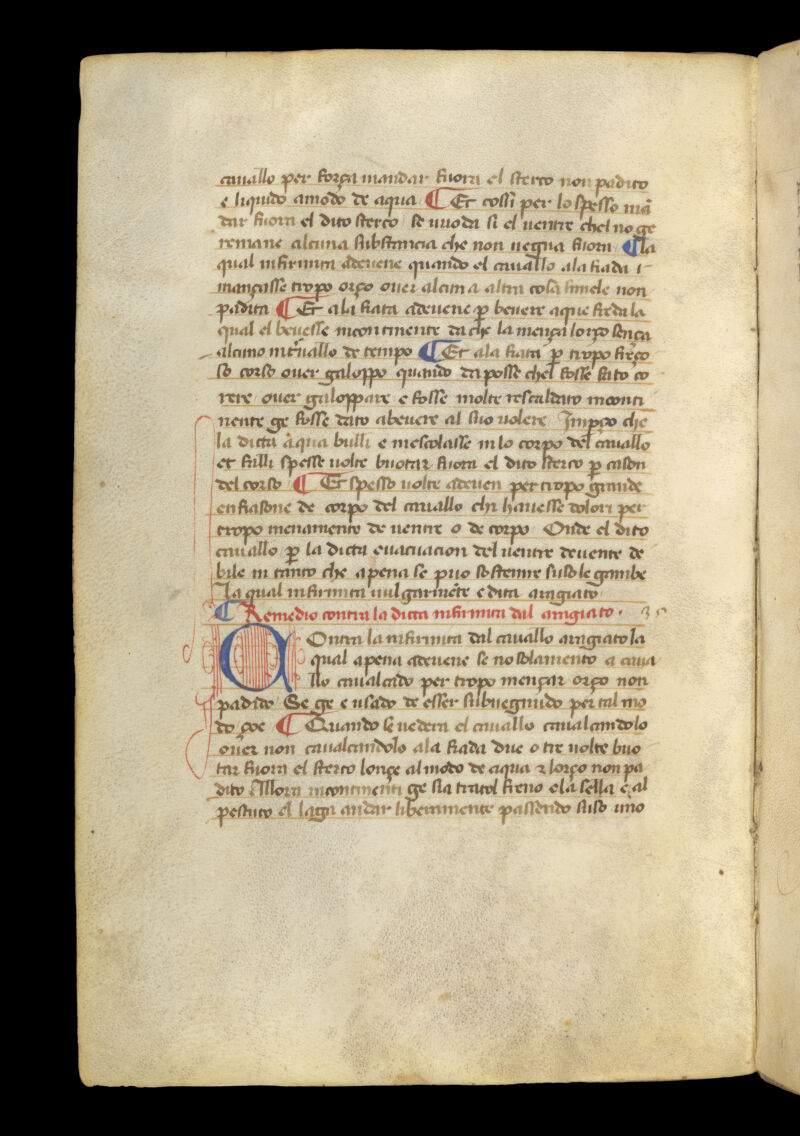 cauallo per força mandar fuora el sterco non padito
e liquido amodo de aqua ¶ Et cossi per lo spesso mã
dar fuora el dito sterco se uuoda si el uentre chel no ge
remane alcuna substancia che non uegna fuora ¶ la
qual infirmita adeuene quando el cauallo ala fiada
mançasse tropo orço ouer alcuna altra cosa simele non
padita ¶ Et ala fiata adeuene p̱ beuere aque freda la
qual el beuesse incontinente da che la mença lorço sença
alcuno int̓uallo de tempo ¶ Et ala fiata p̱ tropo
so corso ouer galoppo quando daposse chel fosse fato co
rere ouer galoppare e fosse molto rescaldato inconti
nente ge fosse dato abeuere al suo uolere Imp̱ço che
la dicta aqua bulli e mescolasse in lo corpo del cauallo
et falli spesse uolte buotar fuora el dito sterco p̱ cason
del corso ¶ Et spesso uolte adeuen per tropo grande
enfiasone de corpo del cauallo chi hauesse dolori per
tropo menamento de uentre o de corpo Onde el dito
cauallo p̱ la dicta euacuacion del uentre deuente de
bile in tanto che apena se puo sostenire suso le gambe
la qual infirmita uulgarmẽte e dita aragiato
¶ Remedio contra la dicta infirmita dal aragiato · 35
Contra la infirmita dal cauallo aragiato la
qual apena adeuene se no solamento a caua
llo caualcado per tropo mençar orço non
padido Se ge e usado de esser subuegnudo per tal mo
do çoe ¶ Quando se uedera el cauallo caualcandolo
ouer non caualcandolo ala fiada due o tre uolte buo
tar fuora el sterco lonçe al modo de aqua ⁊ lorço non pa
dito Allora incontinenti ge sia tratol freno e la sella e al
pestuto el laga andar liberamente passendo suso uno